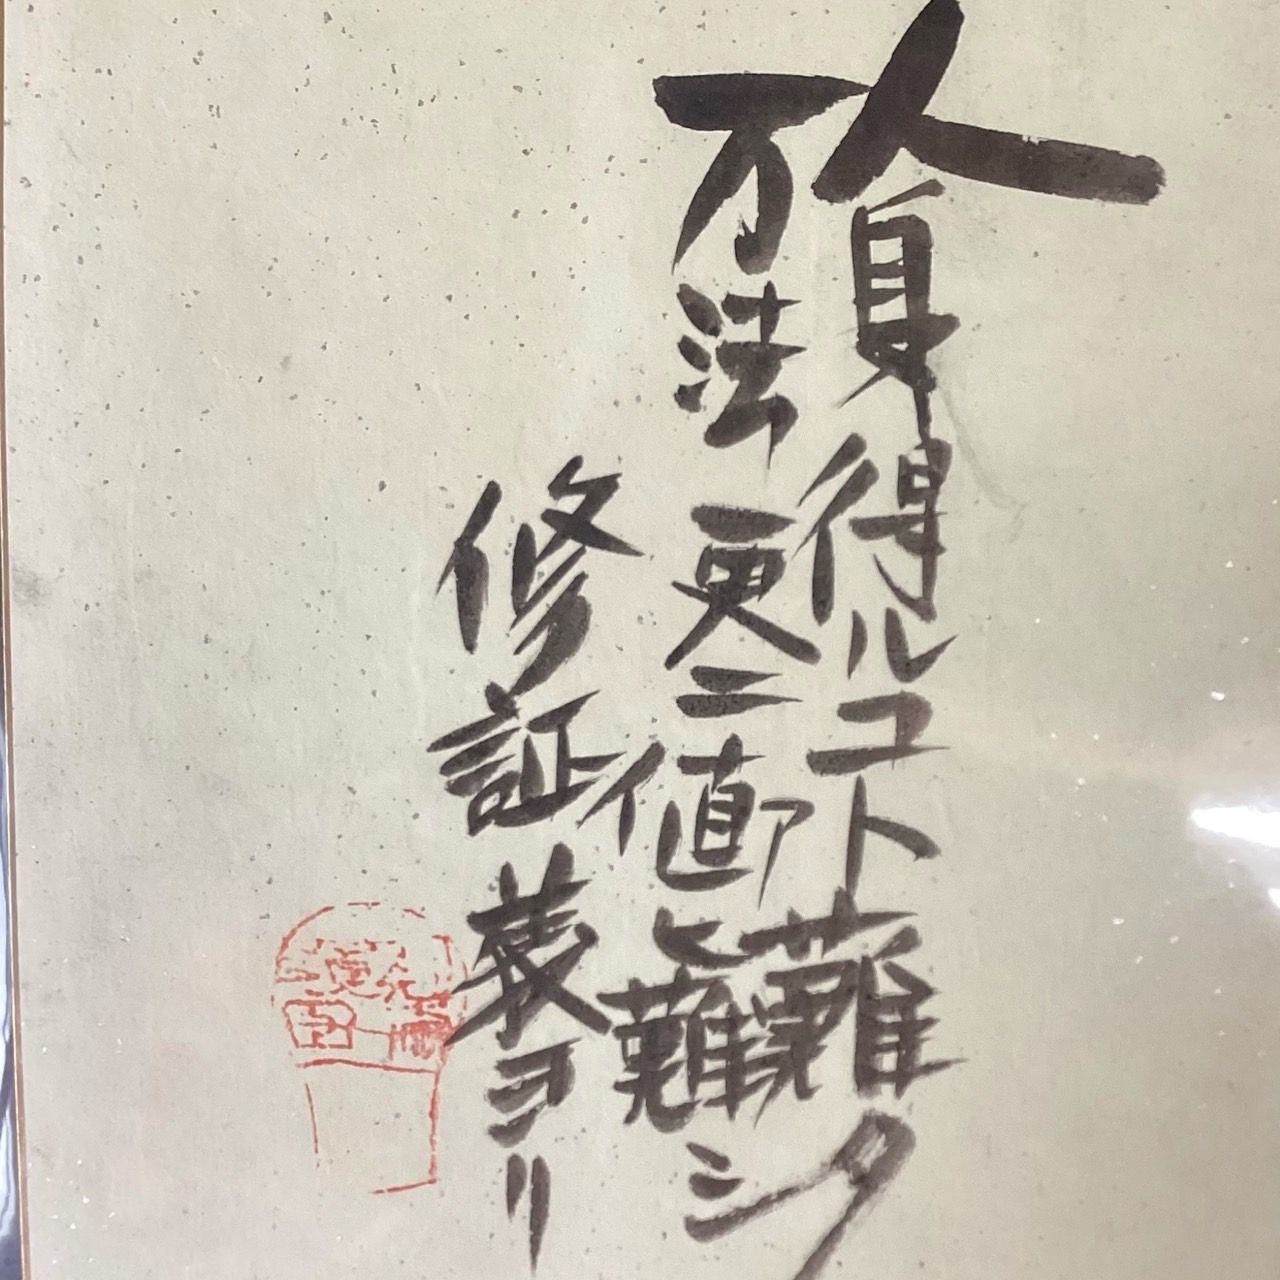 人身得ルコト難タ
万法更ニ値アヒ難シ
修証義ヨリ